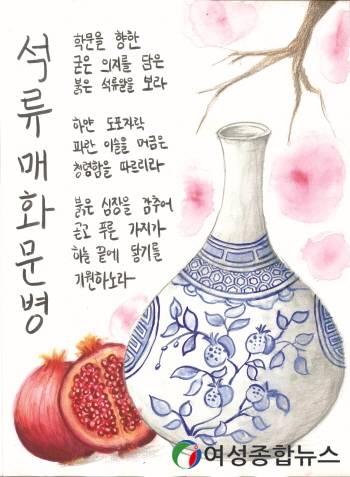 석류매화문병
학문을 향한
굳은 의지를 담은
붉은 석류알을 보라
하얀 도포자락
파란 이슬을 머금은
청렴함을 따르리라
붉은 심장을 감추어
곧고 푸른 가지가
하늘 끝에 닿기를
기원하노라
여성종합뉴스